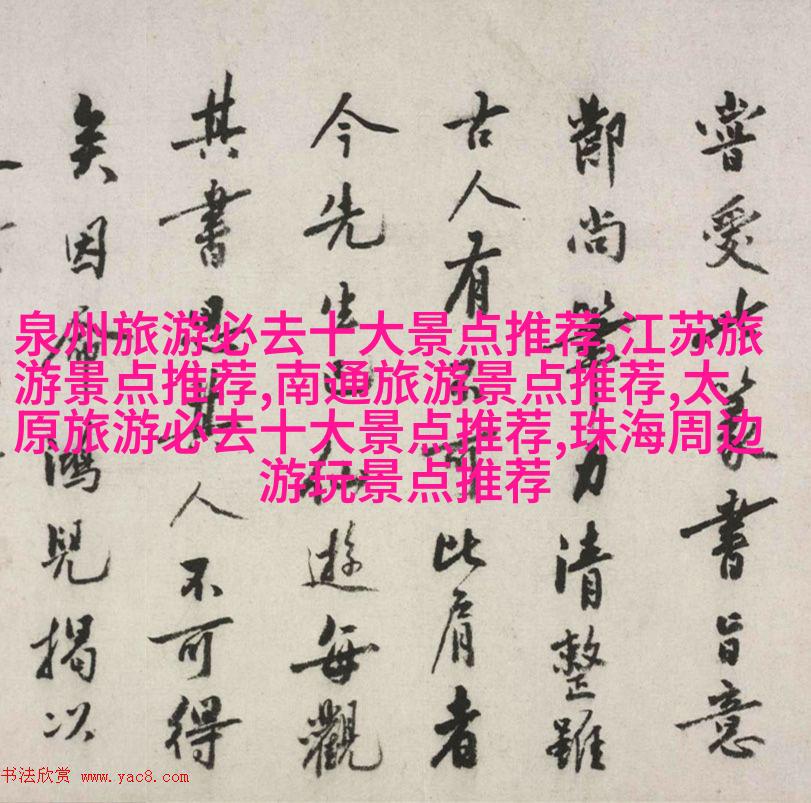 泉州旅游必去十大景点推荐,江苏旅
游景点推荐,南通旅游景点推荐,太
原旅游必去十大景点推荐,珠海周边
游玩景点推荐
嘗愛書旨意
尚筆力清整雖
古人有比肩者
今先生遊每觀
其書思其人不可得
矣因命鴻兒揭以
书法欣赏 www.yac8.com